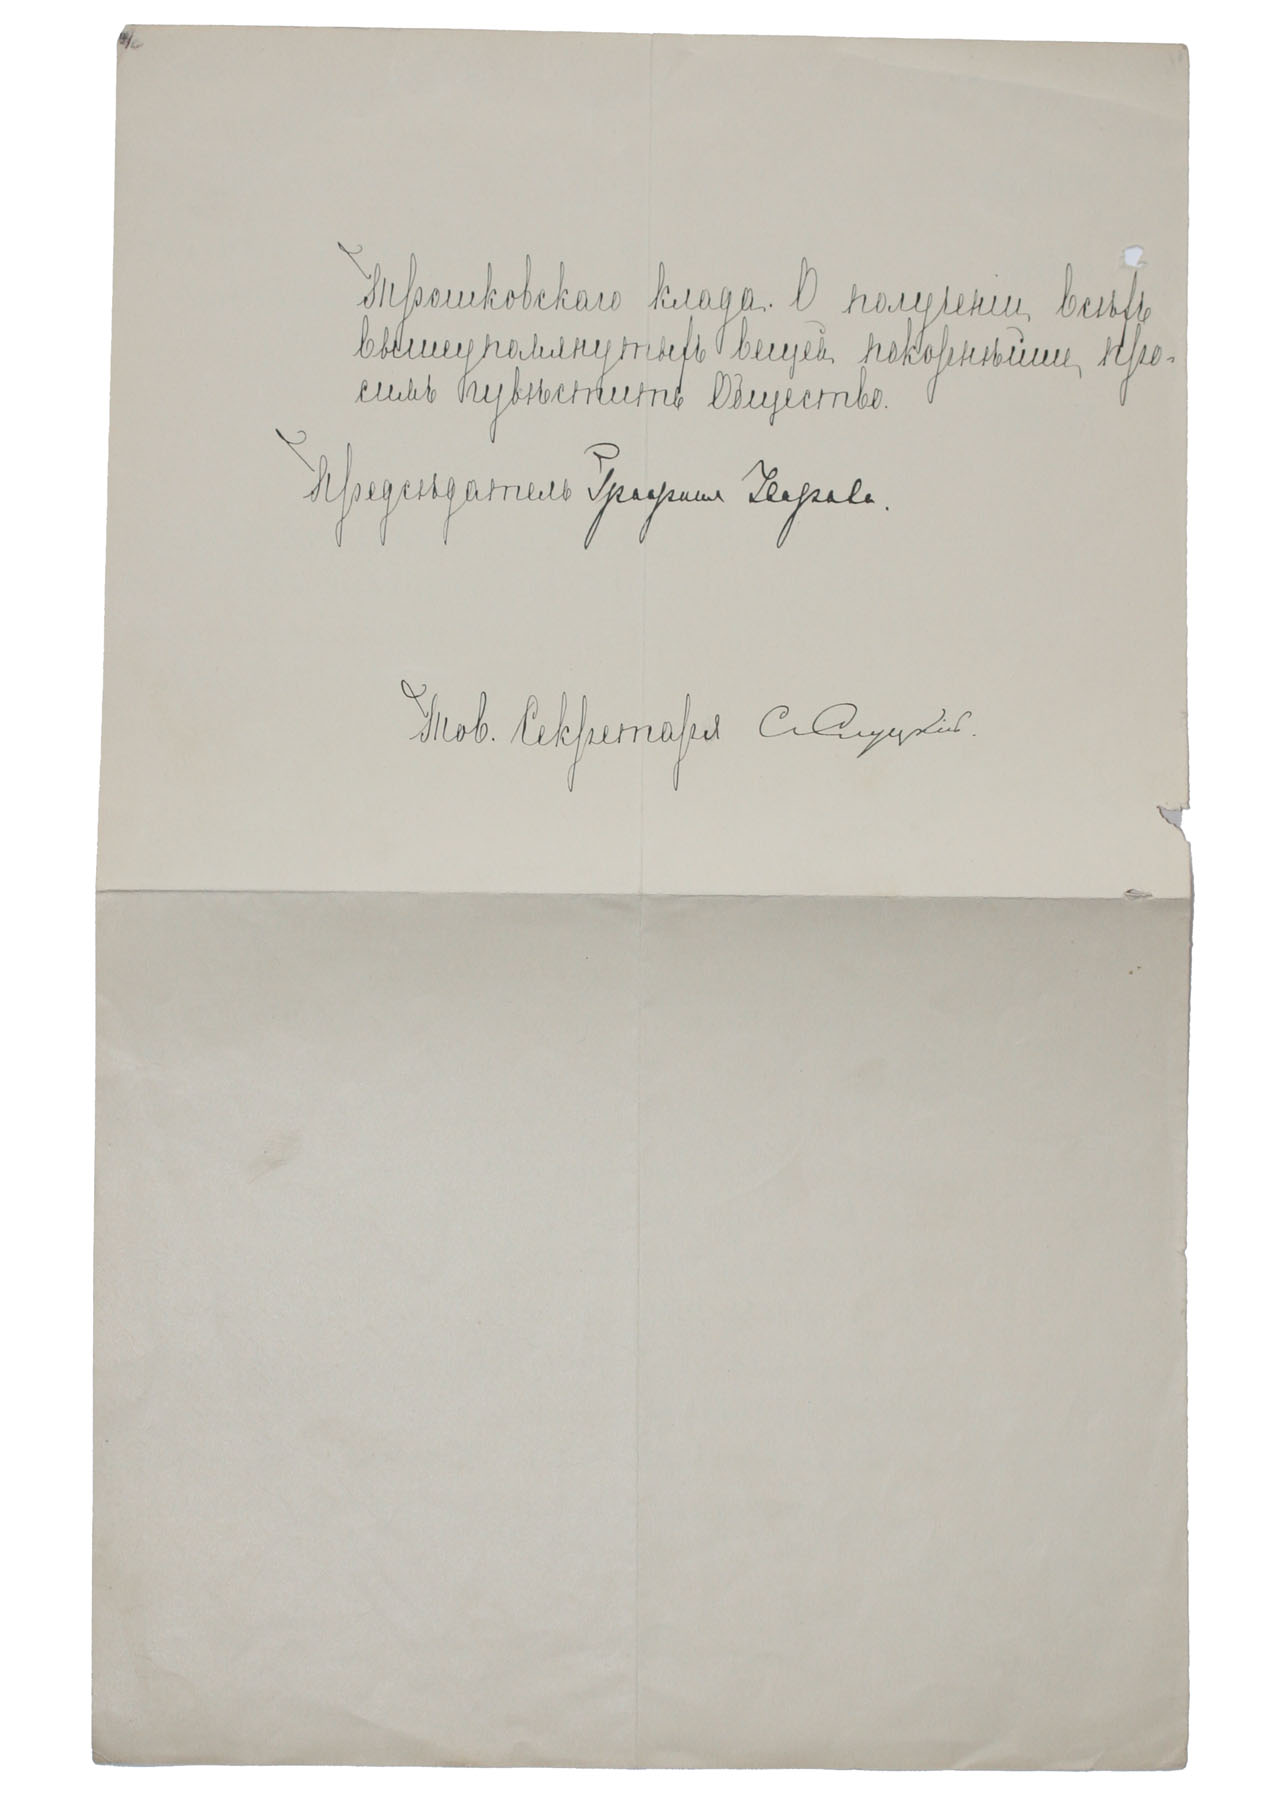 Трошковскаго клада. О полученіи всѣхъ
вышеупомянутыхъ вещей покорнѣйше про-
симъ увѣстить Общество.
Предсѣдатель Графиня Уварова.
Тов. Секретаря С. Слуцкій.